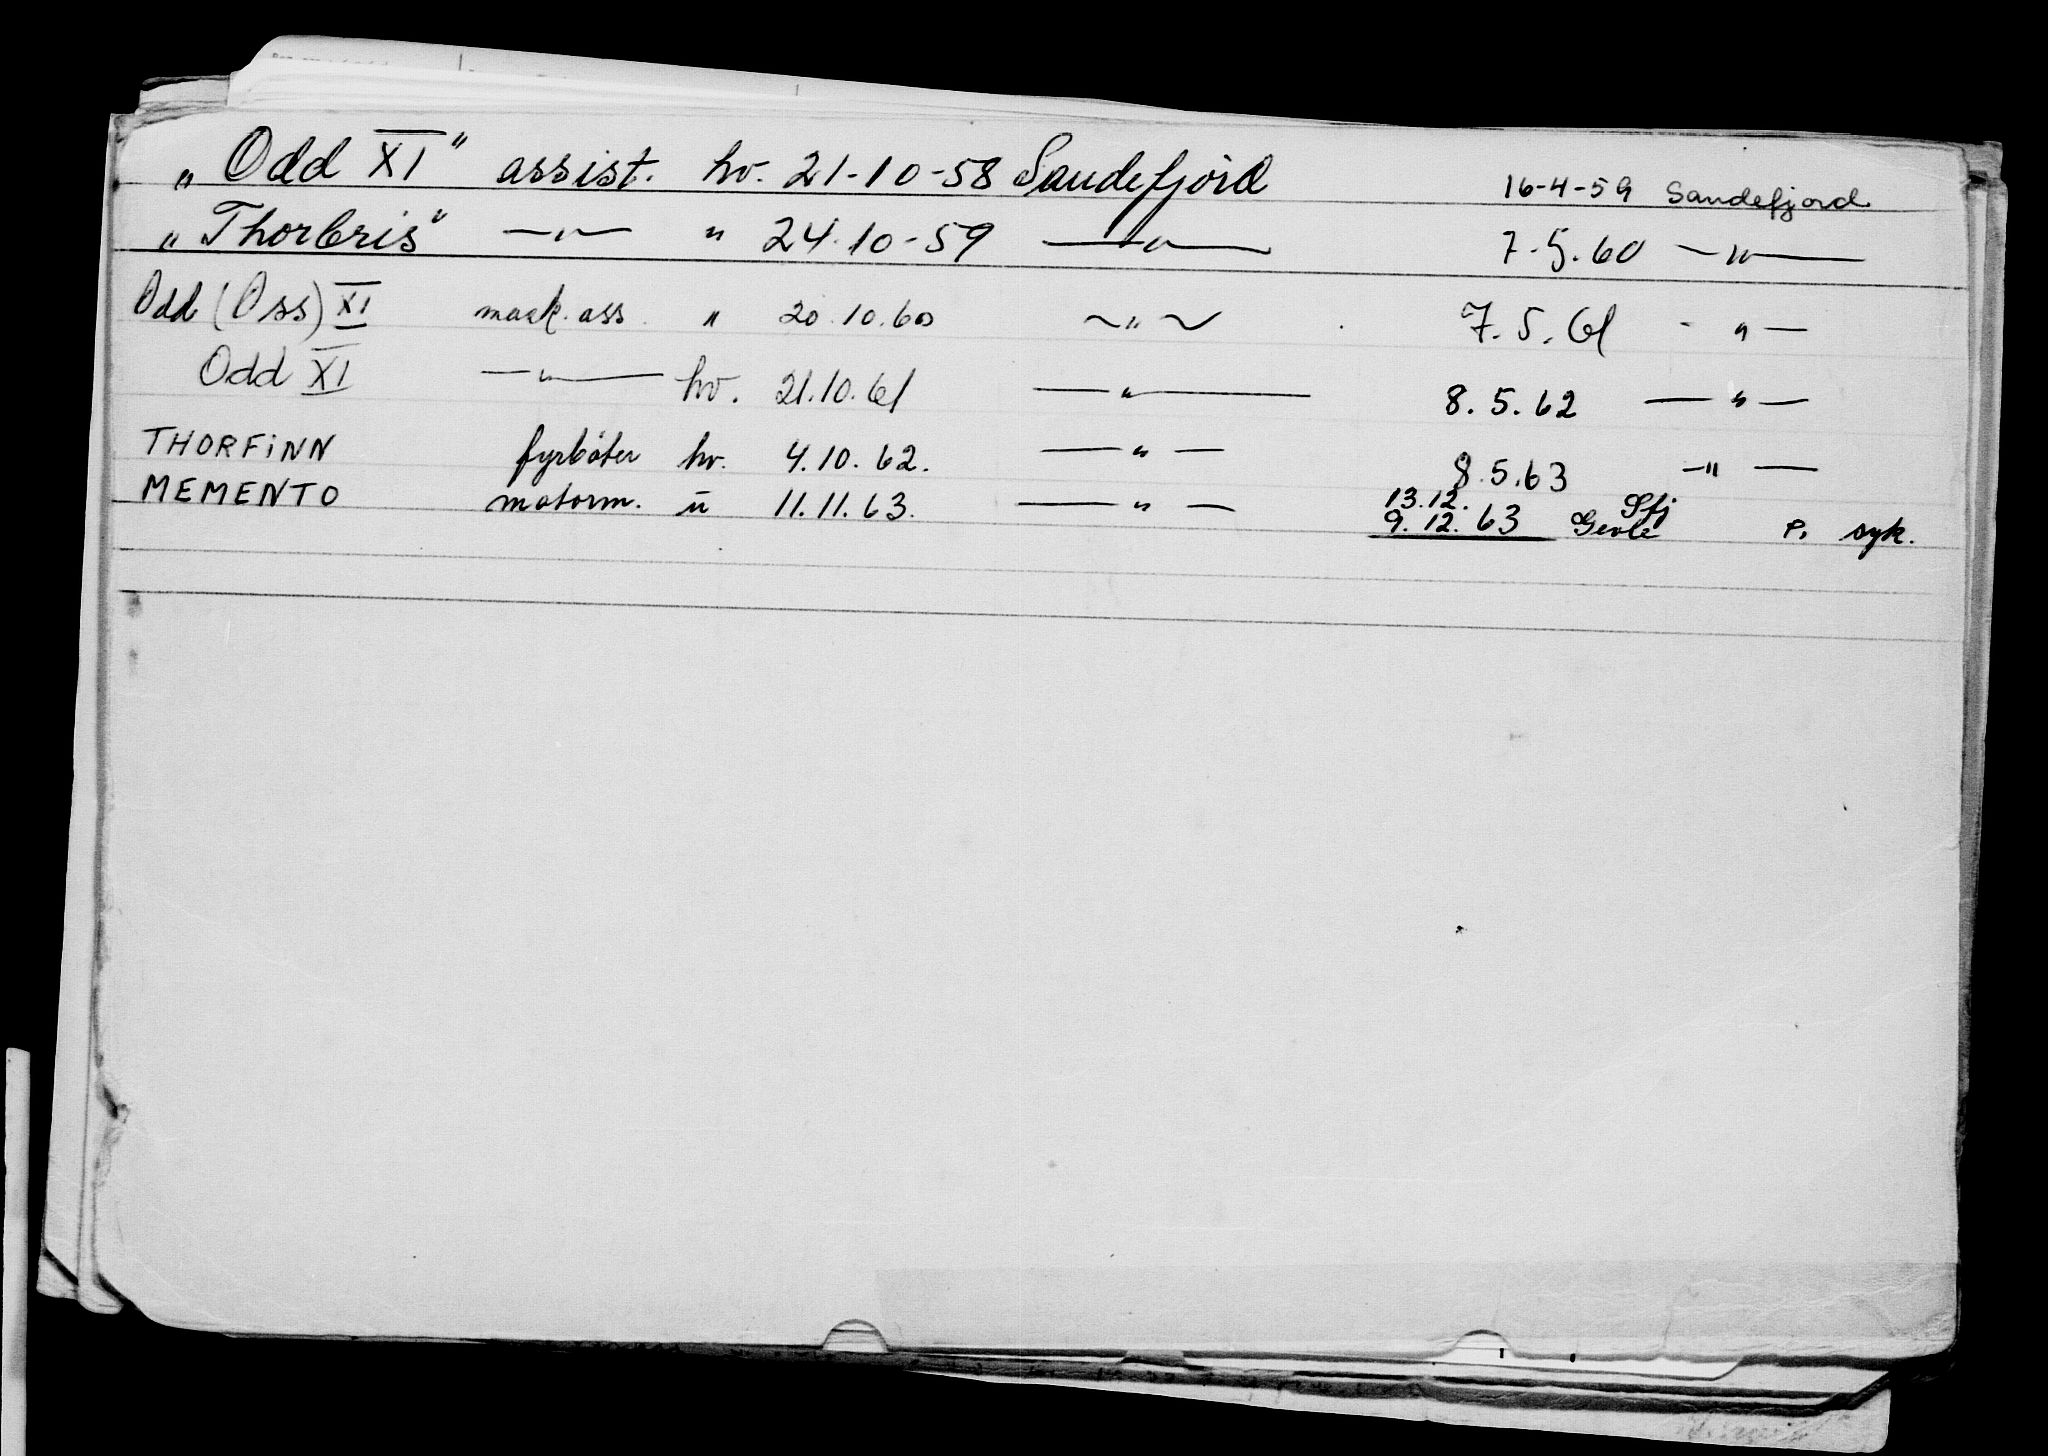 „Odd XI" assist. hv. 21-10-58 Sandefjord 16-4-59 Sandefjord
„Thorbris" —"— " 24.10-59 —"— 7-5.60 —"—
Odd (Oss) XI mask. ass. " 20.10.60 ~"~ 7.5.61 - "—
Odd XI —"— hv. 21.10.61 —"— 8.5.62 —"—
THORFINN fyrbøter hv. 4.10.62. —"— 8.5.63 —"—
MEMENTO motorm. u 11.11.63. —"— 13.12. Sfj
9.12.63 Gevle P. syk.